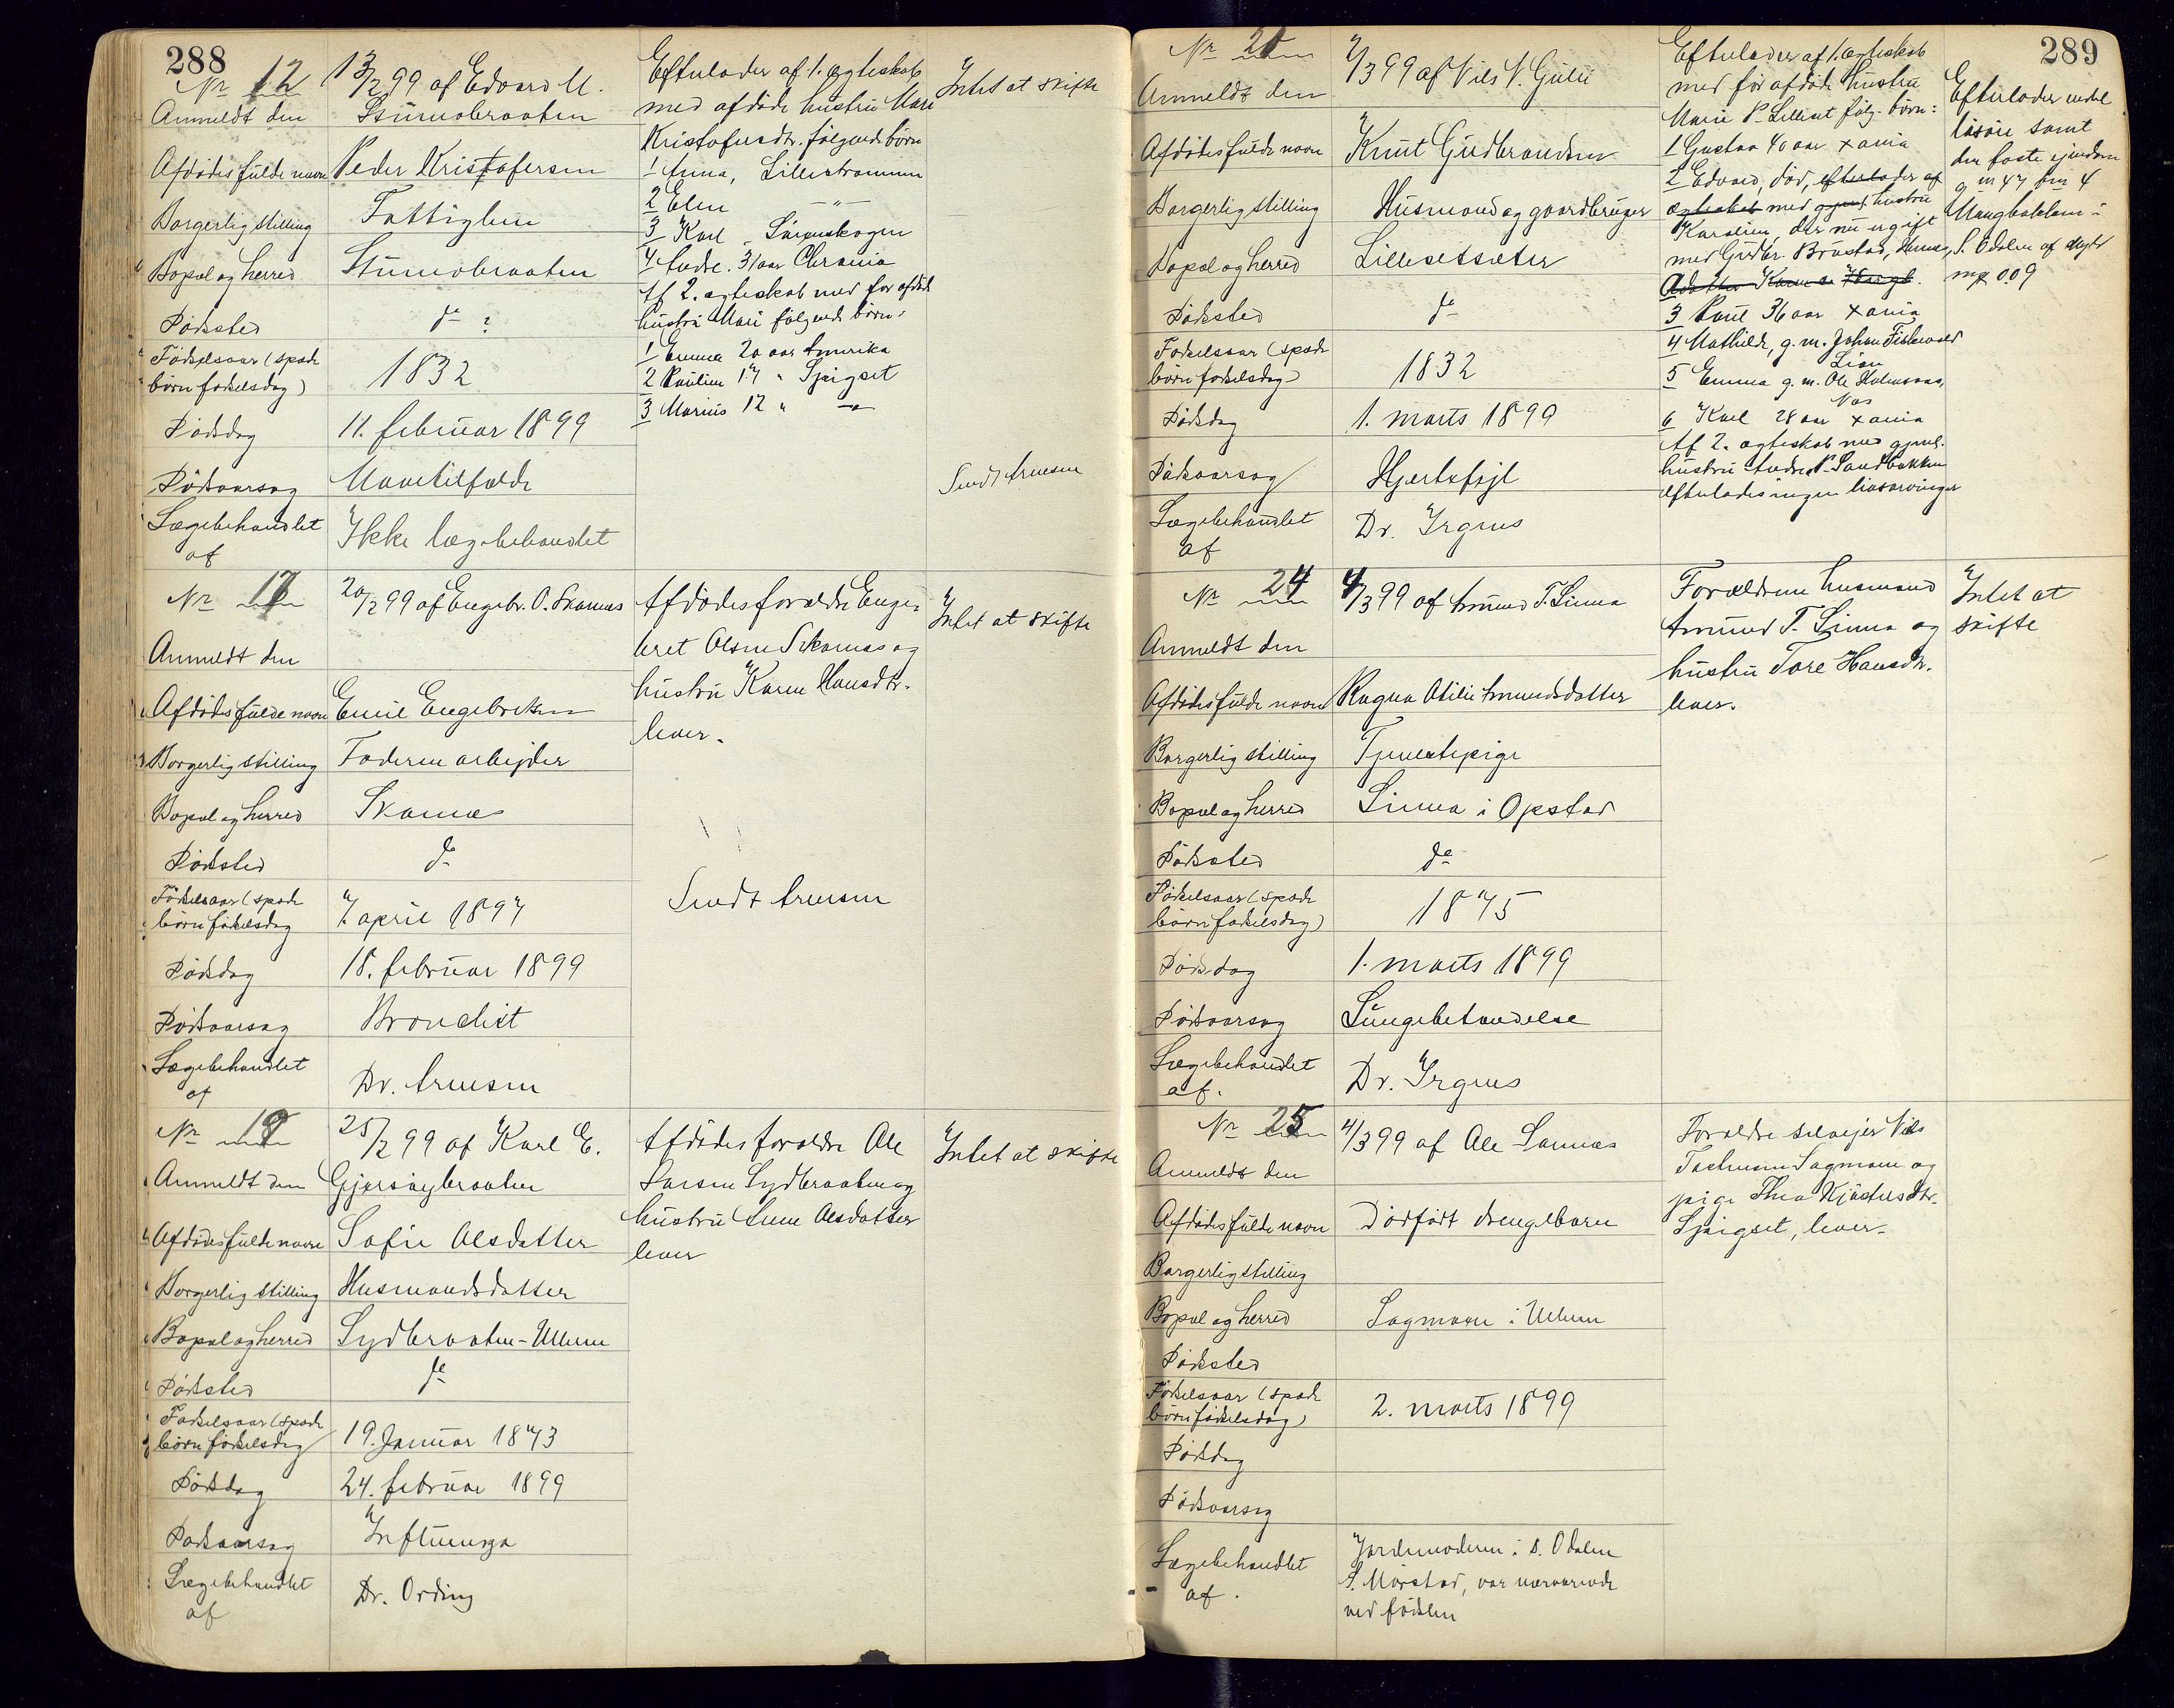 288
Nr 12
Anmeldt den
13/2 99 af Edvard M.
Stumobraaten
Afdødes fulde navn Peder Kristofersen
Borgerlig stilling Fattiglem
Bopæl og herred Stumobraaten
Fødested do ?
Fødselsaar (spæde
børn fødselsdag) 1832
Dødsdag 11. februar 1899
Dødsaarsag Mavetilfælde
Lægebehandlet
af
Ikke lægebehandlet
Efterlader af 1. ægteskab
med afdøde hustru Mari
Kristofersdtr. følgende børn
1 Anna, Lillestrømmen
2 Elen -"-
3 Karl
4 Andr. 31 aar Chrania
Af 2. ægteskab med før afdøde
hustru Mari følgende børn,
1 Emma 20 aar Amerika
2 Pauline 17 "
3 Marius 12 " -"-
Intet at skifte
Sendt Arnesen
Nr 17
Anmeldt den
20/2 99 af Engebr. O. Skamæs
Afdødes fulde navn Emil Engebretsen
Borgerlig stilling Faderen arbejder
Bopæl og herred Skamæs
Dødssted do
Fødselsaar (spæde
børn fødselsdag 7. april 1897
Dødsdag 18. februar 1899
Dødsaarsag Bronchit
Lægebehandlet
af
Dr. Arnesen
Afdødes forældre Enge-
bret Olsen Skamæs og
hustru Karen Hansdtr.
lever.
Intet at skifte
Sendt Arnesen
Nr 19
Anmeldt den
25/2 99 af Karl E.
Gjersøybraaten
Afdødes fulde navn Sofie Olsdatter
Borgerlig stilling Husmandsdatter
Bopæl og herred Sydbraaten - Ullern
Dødssted do
Fødselsaar (spæde
børn fødselsdag 19. Januar 1873
Dødsdag 24. februar 1899
Dødsaarsag Influenza
Lægebehandlet
af
Dr. Ording
Afdødes forældre Ole
Larsen Sydbraaten og
hustru Lene Olsdatter
lever
Intet at skifte
289
Anmeldt den
/3 99 af Nils N. Guli
Afdødes fulde navn Knut Gudbrandsen
Borgerlig stilling Husmand og gaardbruger
Bopæl og herred Lillesetsæter
Dødssted do
Fødselsaar (spæde
børn fødselsdag) 1832
Dødsdag 1. marts 1899
Dødsaarsag Hjertefejl
Lægebehandlet
af
Dr. Irgens
Efterlader af 1. ægteskab
med før afdøde hustru
Marie P. Lilleset følg. børn:
1 Gustav 40 aar Xania
2 Edvard, død, efterlader af
ægteskab med gjenl. hustru
Karoline, der nu er gift
med Gudbr. Brustad,
3 Paul 36 aar Xania
4 Mathilde, g. m. Johan Fiskevold
Lien
5 Emma g. m. Ole Holmsaas,
Næs
6 Karl 28 aar Xania
Af 2. ægteskab med gjenl.
hustru Andrea P. Sandbakken
efterlades ingen livsarvinger
Efterlader endel
løsøre samt
den faste ejendom
g no 47 brn 4
i
S. Odalen af skyld
mrk 0.09
Nr 24
Anmeldt den
4/3 99 af Amund T. Linna
Afdødes fulde navn Ragna Otilie Amundsdatter
Borgerlig stilling Tjenestepige
Bopæl og herred Linna i Opstad
Dødssted do
Fødselsaar (spæde
børn fødselsdag) 1875
Dødsdag 1. marts 1899
Dødsaarsag Lungebetændelse
Lægebehandlet
af.
Dr. Irgens
Forældrene husmand
Amund T. Linna og
hustru Tore Hansdtr.
lever.
Intet at
skifte
Nr 25
Anmeldt den
4/3 99 af Ole Sannæs
Afdødes fulde navn Dødfødt drengebarn
Borgerlig stilling
Bopæl og herred Sagmoen i Ullern
Dødssted
Fødselsaar (spæde
børn fødselsdag) 2. marts 1899
Dødsdag
Dødsaarsag
Lægebehandlet
af.
Jordemoderen i S. Odalen
S. Mørstad, var nærværende
ved fødslen
Forældre selvejer Nils
Sagmoen og
pige Thea
lever.